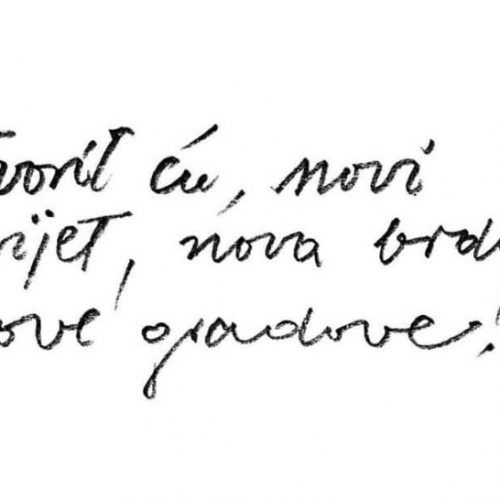 tvorit ću, novi
vijet, nova brda
ove gradove!